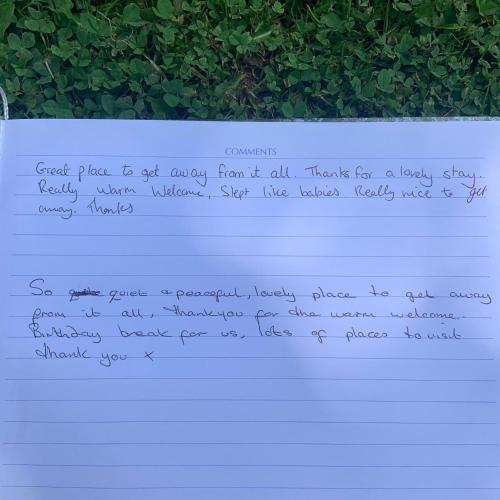 COMMENTS
Great place to get away from it all. Thanks for a lovely stay.
Really warm welcome, Slept like babies Really nice to get
away. Thanks
So quiet & peaceful, lovely place to get away
from it all, thankyou for the warm welcome.
Birthday break for us, lots of places to visit
thank you x